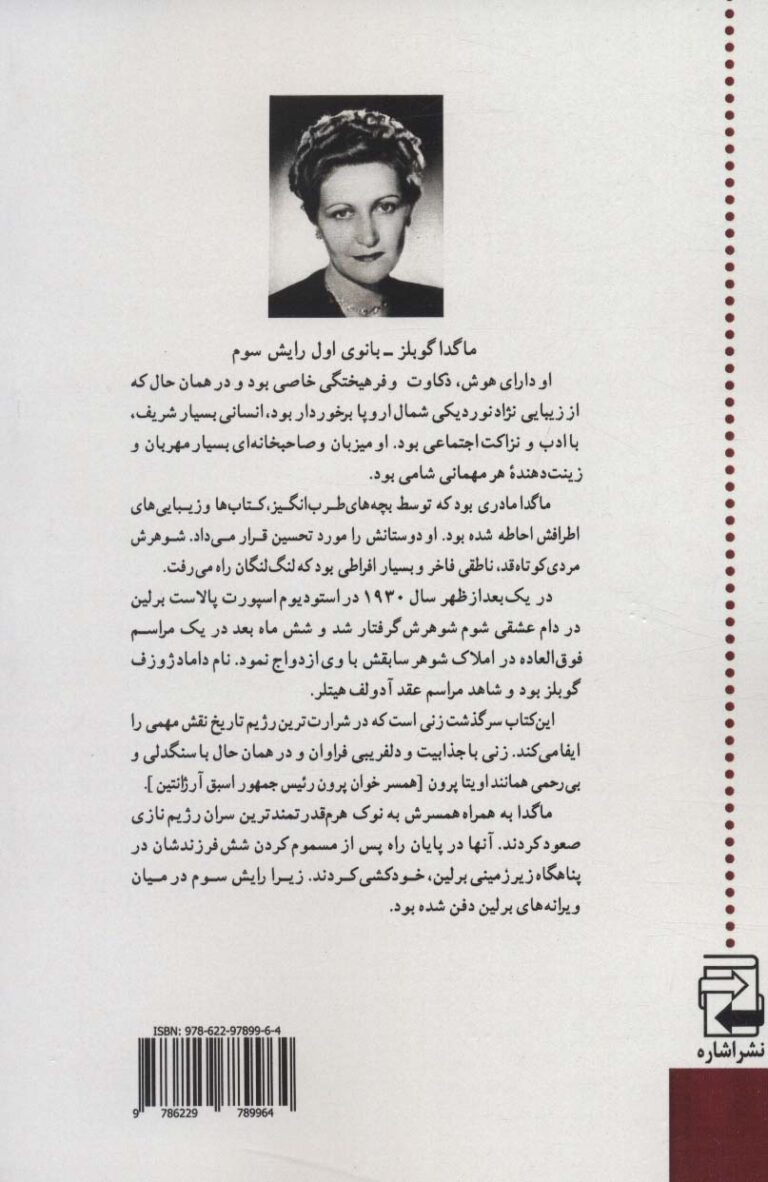 ماگدا گوبلز ـ بانوی اول رایش سوم
او دارای هوش، ذکاوت و فرهیختگی خاصی بود و در همان حال که
از زیبایی نژاد نوردیکی شمال اروپا برخوردار بود، انسانی بسیار شریف،
با ادب و نزاکت اجتماعی بود. او میزبان و صاحبخانه‌ای بسیار مهربان و
زینت‌دهندهٔ هر مهمانی شامی بود.
ماگدا مادری بود که توسط بچه‌های طرب‌انگیز، کتاب‌ها و زیبایی‌های
اطرافش احاطه شده بود. او دوستانش را مورد تحسین قرار می‌داد. شوهرش
مردی کوتاه‌قد، ناطقی فاخر و بسیار افراطی بود که لنگ‌لنگان راه می‌رفت.
در یک بعدازظهر سال ۱۹۳۰ در استودیوم اسپورت پالاست برلین
در دام عشقی شوم شوهرش گرفتار شد و شش ماه بعد در یک مراسم
فوق‌العاده در املاک شوهر سابقش با وی ازدواج نمود. نام داماد ژوزف
گوبلز بود و شاهد مراسم عقد آدولف هیتلر.
این کتاب سرگذشت زنی است که در شرارت‌ترین رژیم تاریخ نقش مهمی را
ایفا می‌کند. زنی با جذابیت و دلفریبی فراوان و در همان حال با سنگدلی و
بی‌رحمی همانند اویتا پرون [همسر خوان پرون رئیس جمهور اسبق آرژانتین ].
ماگدا به همراه همسرش به نوک هرم قدرتمندترین سران رژیم نازی
صعود کردند. آنها در پایان راه پس از مسموم کردن شش فرزندشان در
پناهگاه زیرزمینی برلین، خودکشی کردند. زیرا رایش سوم در میان
ویرانه‌های برلین دفن شده بود.
نشر اشاره
ISBN: 978-622-97899-6-4
9 786229 789964